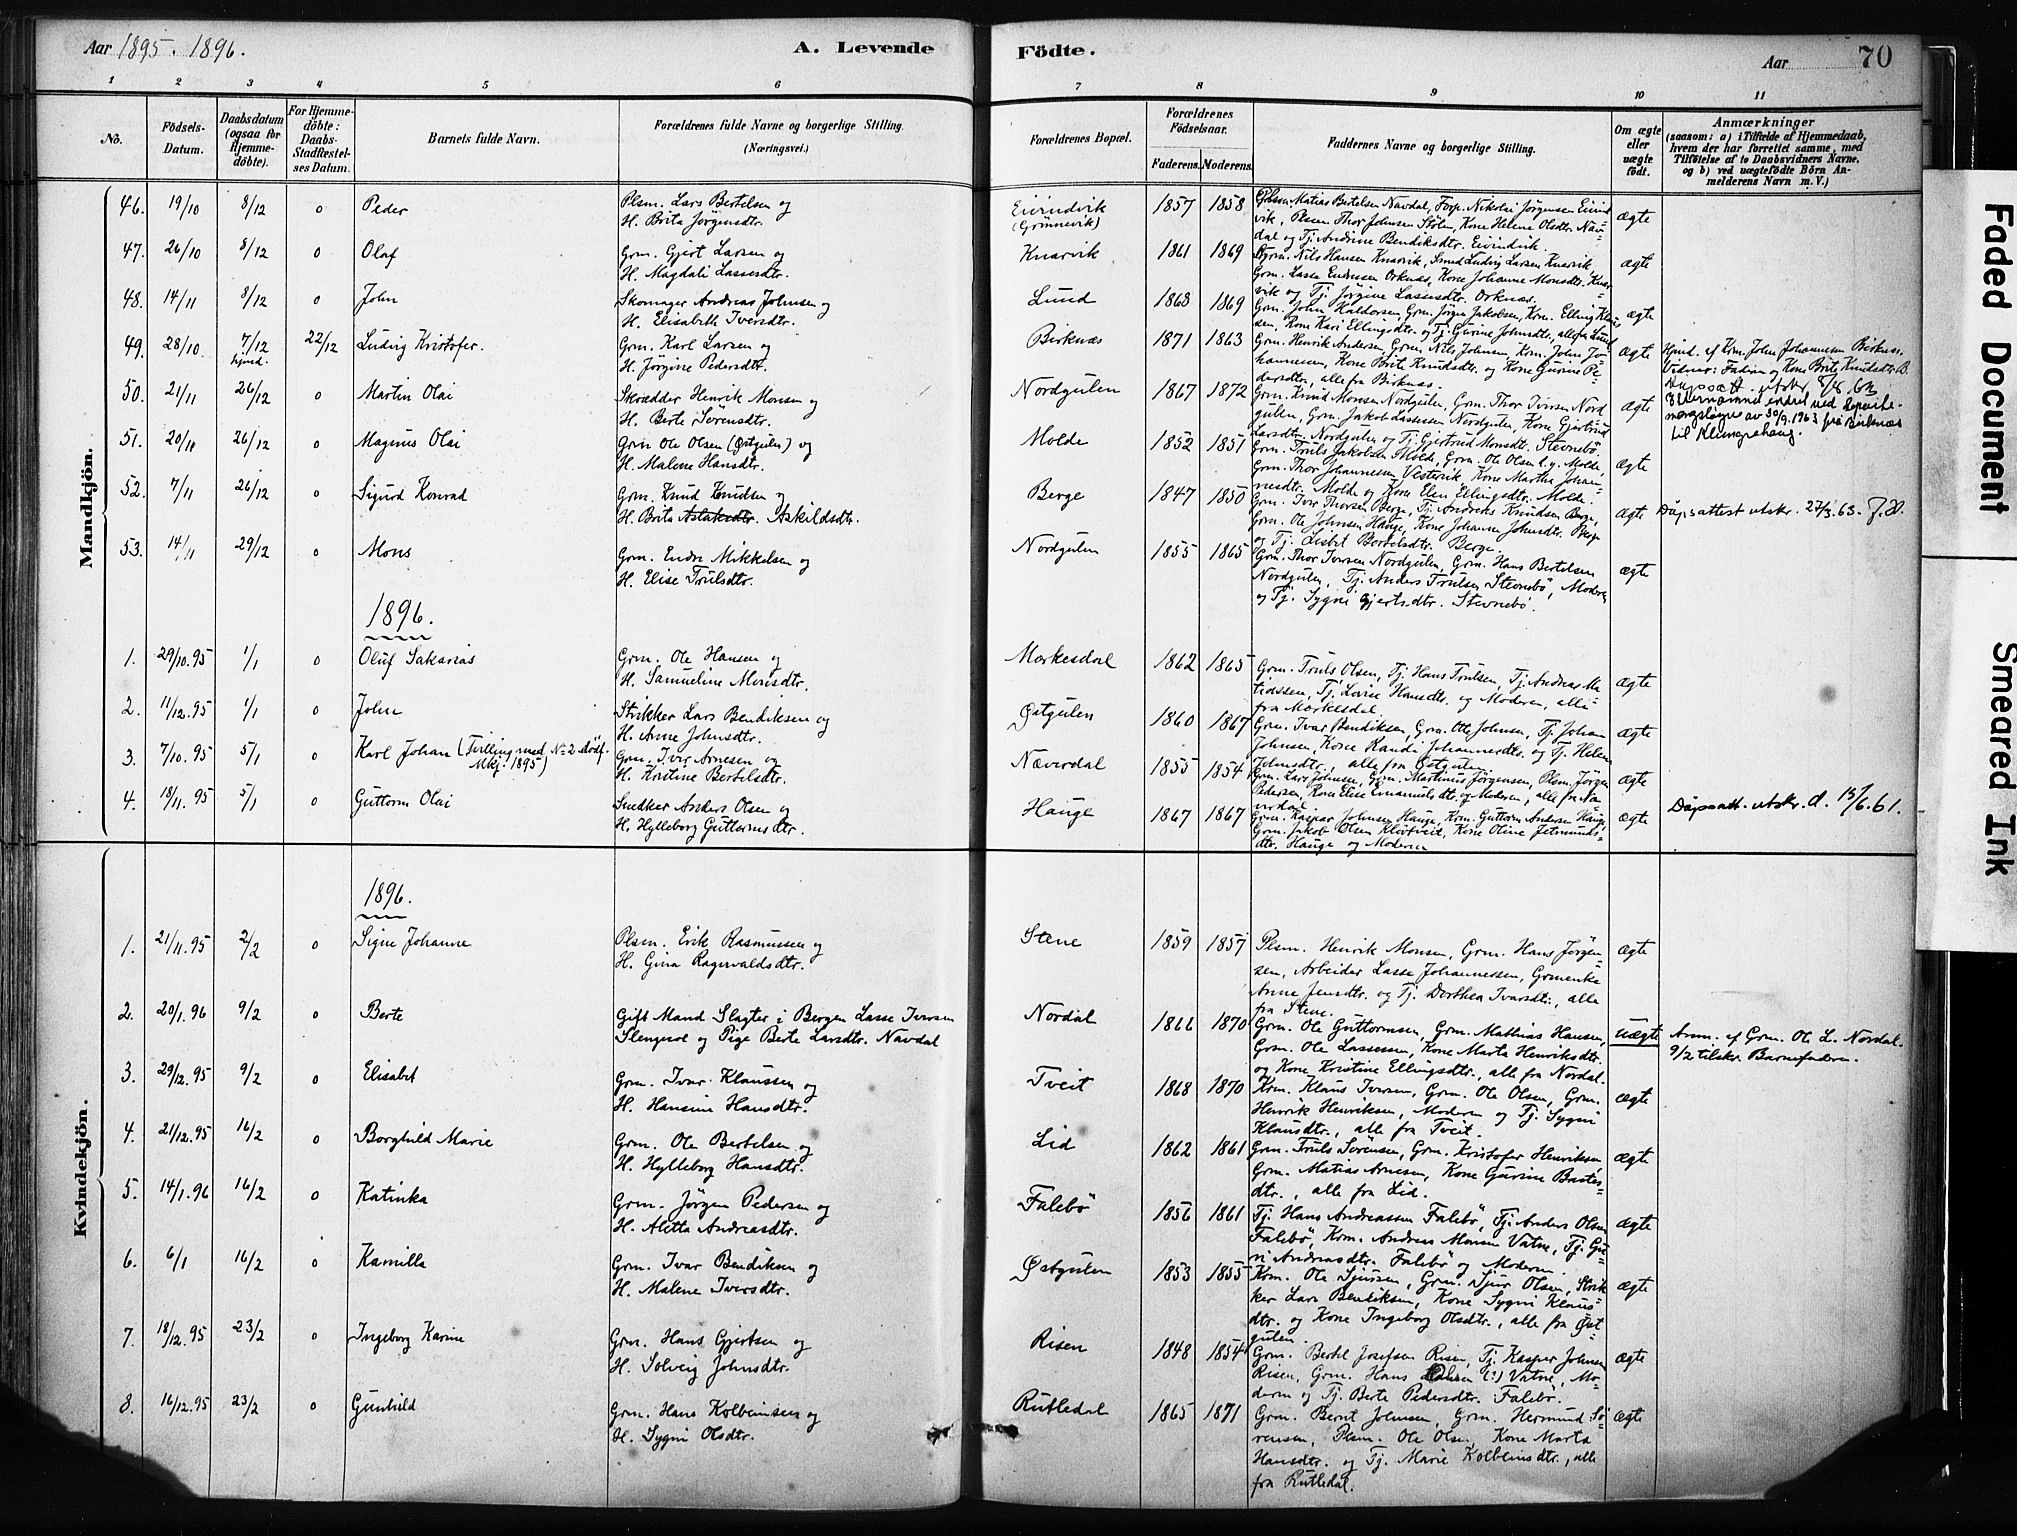 Aar 1895. 1896.
A. Levende
Födte.
Aar
70
1 2 3 4 5 6 7 8 9 10 11
No.
Födsels-
Datum.
Daabsdatum
(ogsaa for
Hjemme-
döbte).
For Hjemme-
döbte:
Daabs-
Stadfæstel-
ses Datum.
Barnets fulde Navn.
Forældrenes fulde Navne og borgerlige Stilling.
(Næringsvei.)
Forældrenes Bopæl.
Forældrenes
Födselsaar.
Faderens.
Moderens.
Faddernes Navne og borgerlige Stilling.
Om ægte
eller
uægte
födt.
Anmærkninger
(saasom: a) i Tilfælde af Hjemmedaab,
hvem der har forrettet samme, med
Tilföielse af to Daabsvidners Navne,
og b) ved uægtefödte Börn An-
melderens Navn m. V.)
Mandkjön.
46. 19/10 8/12 o Peder
Plsm. Lars Bertelsen og
H. Brita Jørgensdtr.
Eivindvik
(Grønnevik)
1857 1858
Plsm. Matias Bertelsen Navdal, Forp. Nikolai Jørgensen Eivind
vik, Plsm Thor Johnsen Stølen, Kone Helene Olsdtr. Nav-
dal og Tj. Andrine Bendiksdtr. Eivindvik.
ægte
47. 26/10 8/12 o Olaf
Grm. Gjert Larsen og
H. Magdali Lassesdtr.
Knarvik
1861 1869
Grm. Nils Hansen Knarvik, Smed Ludvig Larsen Knarvik,
Grm. Lasse Endresen Orknæs, Kone Johanne Monsdtr. Knar-
vik og Tj. Jörgine Lassesdtr. Orknæs.
ægte
48. 14/11 8/12 o John
Skomager Andreas Johnsen og
H. Elisabeth Iversdtr.
Lund
1863 1869
Grm. John Haldorsen, Grm. Jörgen Jakobsen, Krm. Elling Klau-
sen, Kone Kari Ellingsdtr. og Tj. Gurine Johnsdtr., alle fra Lund
ægte
49. 28/10. 7/12 hjmd. 22/12 Ludvig Kristofer.
Grm. Karl Larsen og
H. Jørgine Pedersdtr.
Birknæs
1871 1863
Grm. Henrik Andersen, Grm. Nils Johnsen, Krm. John Jo-
hannessen, Kone Brite Knudsdtr. og Kone Gurine Pe-
dersdtr., alle fra Birknæs.
ægte
Hjmd. af Krm. John Johannessen Birknæs.
Vidner: Fadren og Kone Brite Knudsdtr B.
50. 21/11 26/12 o Martin Olai
Skrædder Henrik Monsen og
H. Berte Sörensdtr.
Nordgulen
1867 1872
Grm. Knud Monsen Nordgulen, Grm. Thor Iversen Nord
gulen, Grm. Jakob Lassesen Nordgulen, Kone Gjertrud
Larsdtr. Nordgulen og Tj. Gjertrud Monsdtr. Stevnebö.
ægte
51. 20/11 26/12 o Magnus Olai
Grm Ole Olsen (Østgulen) og
H. Malene Hansdtr.
Molde
1852 1851
Grm. Truls Jakobsen Molde, Grm. Ole Olsen l.y. Molde,
Grm. Thor Johannessen Vesterik, Kone Martha Johan-
nesdtr. Molde og Kone Elen Ellingsdtr. Molde.
ægte
52. 7/11 26/12 o Sigurd Konrad
Grm. Knud Knudsen og
H. Brita Aslaksdtr. Askildsdtr.
Berge
1847 1850
Grm. Iver Thorsen Berge, Tj. Andreas Knudsen Berge,
Grm. Ole Johnsen Hauge, Kone Johanne Johnsdtr.
og Tj. Lisbet Bertelsdtr. Berge.
ægte
Dåpsattest utskr. 27/3. 63.
53. 14/11 29/12 o Mons
Grm. Endre Mikkelsen og
H. Elise Trulsdtr.
Nordgulen
1855 1865
Grm. Thor Iversen Nordgulen, Grm. Hans Bertelsen
Nordgulen, Tj. Anders Trulsen Stevnebö, Moderen
og Tj. Sygni Gjertsdtr. Stevnebö.
ægte
1896.
1. 29/10.95 1/1 o Oluf Sakarias
Grm. Ole Hansen og
H. Samueline Monsdtr.
Mærkesdal
1862 1865
Grm. Truls Olsen, Tj. Hans Trulsen, Tj. Andreas Ma
tiassen, Tj. Lovise Hansdtr. og Moderen, alle
fra Mærkesdal.
ægte
2. 11/12.95 1/1 o John
Strikker Lars Bendiksen og
H. Anne Johnsdtr.
Østgulen
1860 1867
Grm. Ivar Bendiksen, Grm. Ole Johnsen, Tj. Johan
Johnsen, Kone Randi Johannesdtr. og Tj. Helene
Johnsdtr., alle fra Østgulen.
ægte
3. 7/10.95 5/1 o Karl Johan (Tvilling med No 2 dödf.
Mkj. 1895)
Grm. Iver Arnesen og
H. Kristine Bertelsdtr.
Næverdal
1855 1854
Grm. Lars Johnsen, Grm. Martinus Jørgensen, Plsm. Jørgen
Pedersen, Kone Elise Emanuelsdtr. og Moderen, alle fra Næ
verdal
ægte
4. 18/11.95 5/1 o Guttorm Olai
Snedker Anders Olsen og
H. Hylleborg Guttormsdtr.
Hauge
1867 1867
Grm. Kaspar Johnsen Hauge, Krm. Guttorm Andersen Hauge,
Grm. Jakob Olsen Kløvtveit, Kone Oline Jetmunds-
dtr. Hauge og Moderen
ægte
Dåpsatt. utskr. d. 15/6. 61.
Kvindekjön.
1896.
1. 21/11.95 2/2 o Signe Johanne
Plsm. Erik Rasmussen og
H. Gina Ragnvaldsdtr.
Stene
1859 1857
Plsm. Henrik Monsen, Grm. Hans Jørgen-
sen, Arbeider Lasse Johannessen, Grmenke
Anne Jensdtr. og Tj. Dorthea Ivarsdtr., alle
fra Stene.
ægte
2. 20/1.96 9/2 o Berte
Gift Mand Slagter i Bergen Lasse Iversen
Slengesol og Pige Berte Larsdtr. Navdal
Nordal
1866 1870
Grm. Ole Guttormsen, Grm. Mathias Hansen,
Grm. Ole Lassesen, Kone Marta Henriksdtr.
og Kone Kristine Ellingsdtr., alle fra Nordal.
uægte
Anm. af Grm. Ole L. Nordal.
9/2 tilskr. Barnefaderen.
3. 29/12.95 9/2 o Elisabet
Grm. Ivar Klaussen og
H. Hansine Hansdtr.
Tveit
1868 1870
Krm. Klaus Iversen, Grm. Ole Olsen, Grm.
Henrik Henriksen, Moderen og Tj. Sygni
Klausdtr., alle fra Tveit.
ægte
4. 21/12.95 16/2 o Borghild Marie
Grm. Ole Bertelsen og
H. Hylleborg Hansdtr.
Lid
1862 1861
Grm. Truls Sörensen, Grm. Kristofer Henriksen
Grm. Matias Arnesen, Kone Gurine Bastes-
dtr., alle fra Lid.
ægte
5. 14/1.96 16/2 o Katinka
Grm. Jörgen Pedersen og
H. Aletta Andreasdtr.
Falebö
1856 1861
Tj. Hans Andreassen Falebö, Tj. Anders Olsen
Falebö, Krm. Andreas Monsen Vatne, Tj. Gu-
ri Andreasdtr. Falebö og Moderen.
ægte
6. 6/1 16/2 o Kamilla
Grm. Ivar Bendiksen og
H. Malene Iversdtr.
Østgulen
1853 1855
Krm. Ole Sjursen, Grm. Sjur Olsen, Strik
ker Lars Bendiksen, Kone Sygni Klaus-
dtr. og Kone Ingeborg Olsdtr., alle fra Øst
gulen.
ægte
7. 18/12.95 23/2 o Ingeborg Karine
Grm. Hans Gjertsen og
H. Solveig Johnsdtr.
Risen
1848 1854
Grm. Bertel Josefsen Risen, Tj. Kasper Johnsen
Risen, Grm. Hans Olsen (?) Vatne, Mo-
deren og Tj. Berte Pedersdtr. Falebö.
ægte
8. 16/12.95 23/2 o Gunhild
Grm. Hans Kolbeinsen og
H. Sygni Olsdtr.
Rutledal
1865 1871
Grm. Bernt Johnsen, Grm. Hermund Sö-
rensen, Plsm. Ole Olsen, Kone Marta
Hansdtr. og Tj. Marie Kolbeinsdtr., alle
fra Rutledal.
ægte
Faded Document
Smeared Ink